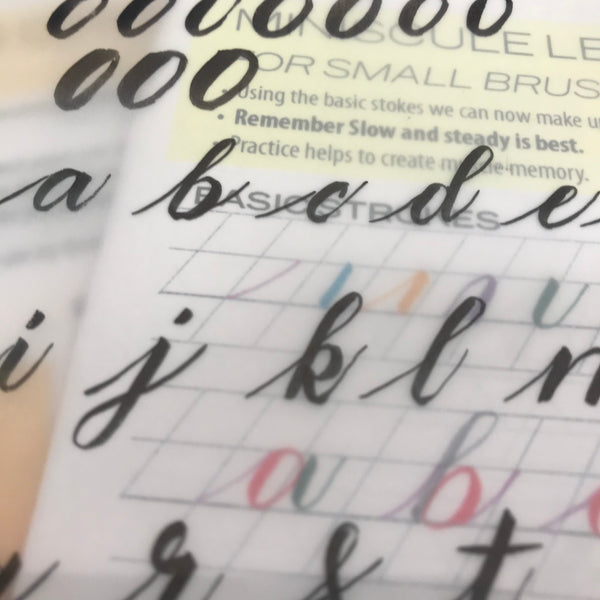 ooooooo
MINISCULE LE
ooo
FOR SMALL BRUS
• Using the basic stokes we can now make u
• Remember Slow and steady is best.
• Practice helps to create muscle-memory.
a b c d e
BASIC STROKES
i j k l
a b
r s t